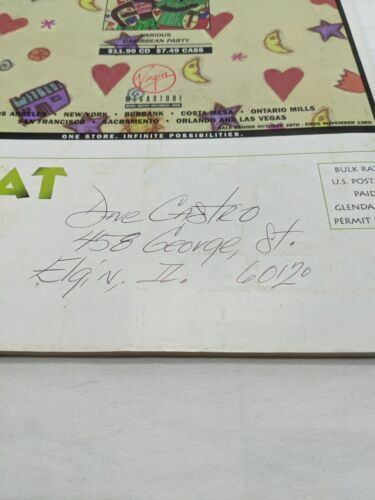 VARIOUS
CARIBBEAN PARTY
$11.99 CD $7.49 CASS
Virgin
MEGASTORE
OS ANGELES • NEW YORK • BURBANK • COSTA MESA • ONTARIO MILLS
SAN FRANCISCO • SACRAMENTO • ORLANDO AND LAS VEGAS
SALE BEGINS OCTOBER 28TH - ENDS NOVEMBER 23RD
ONE STORE. INFINITE POSSIBILITIES.
AT
BULK RA
U.S. POST
PAID
GLENDA
PERMIT
Dave Castro
458 George, St.
Elgin, IL. 60120